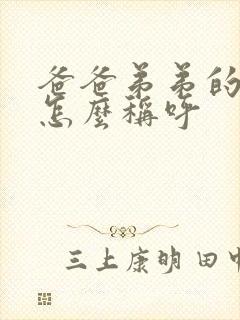 爸爸弟弟的
怎麼稱呼
三上康明田中